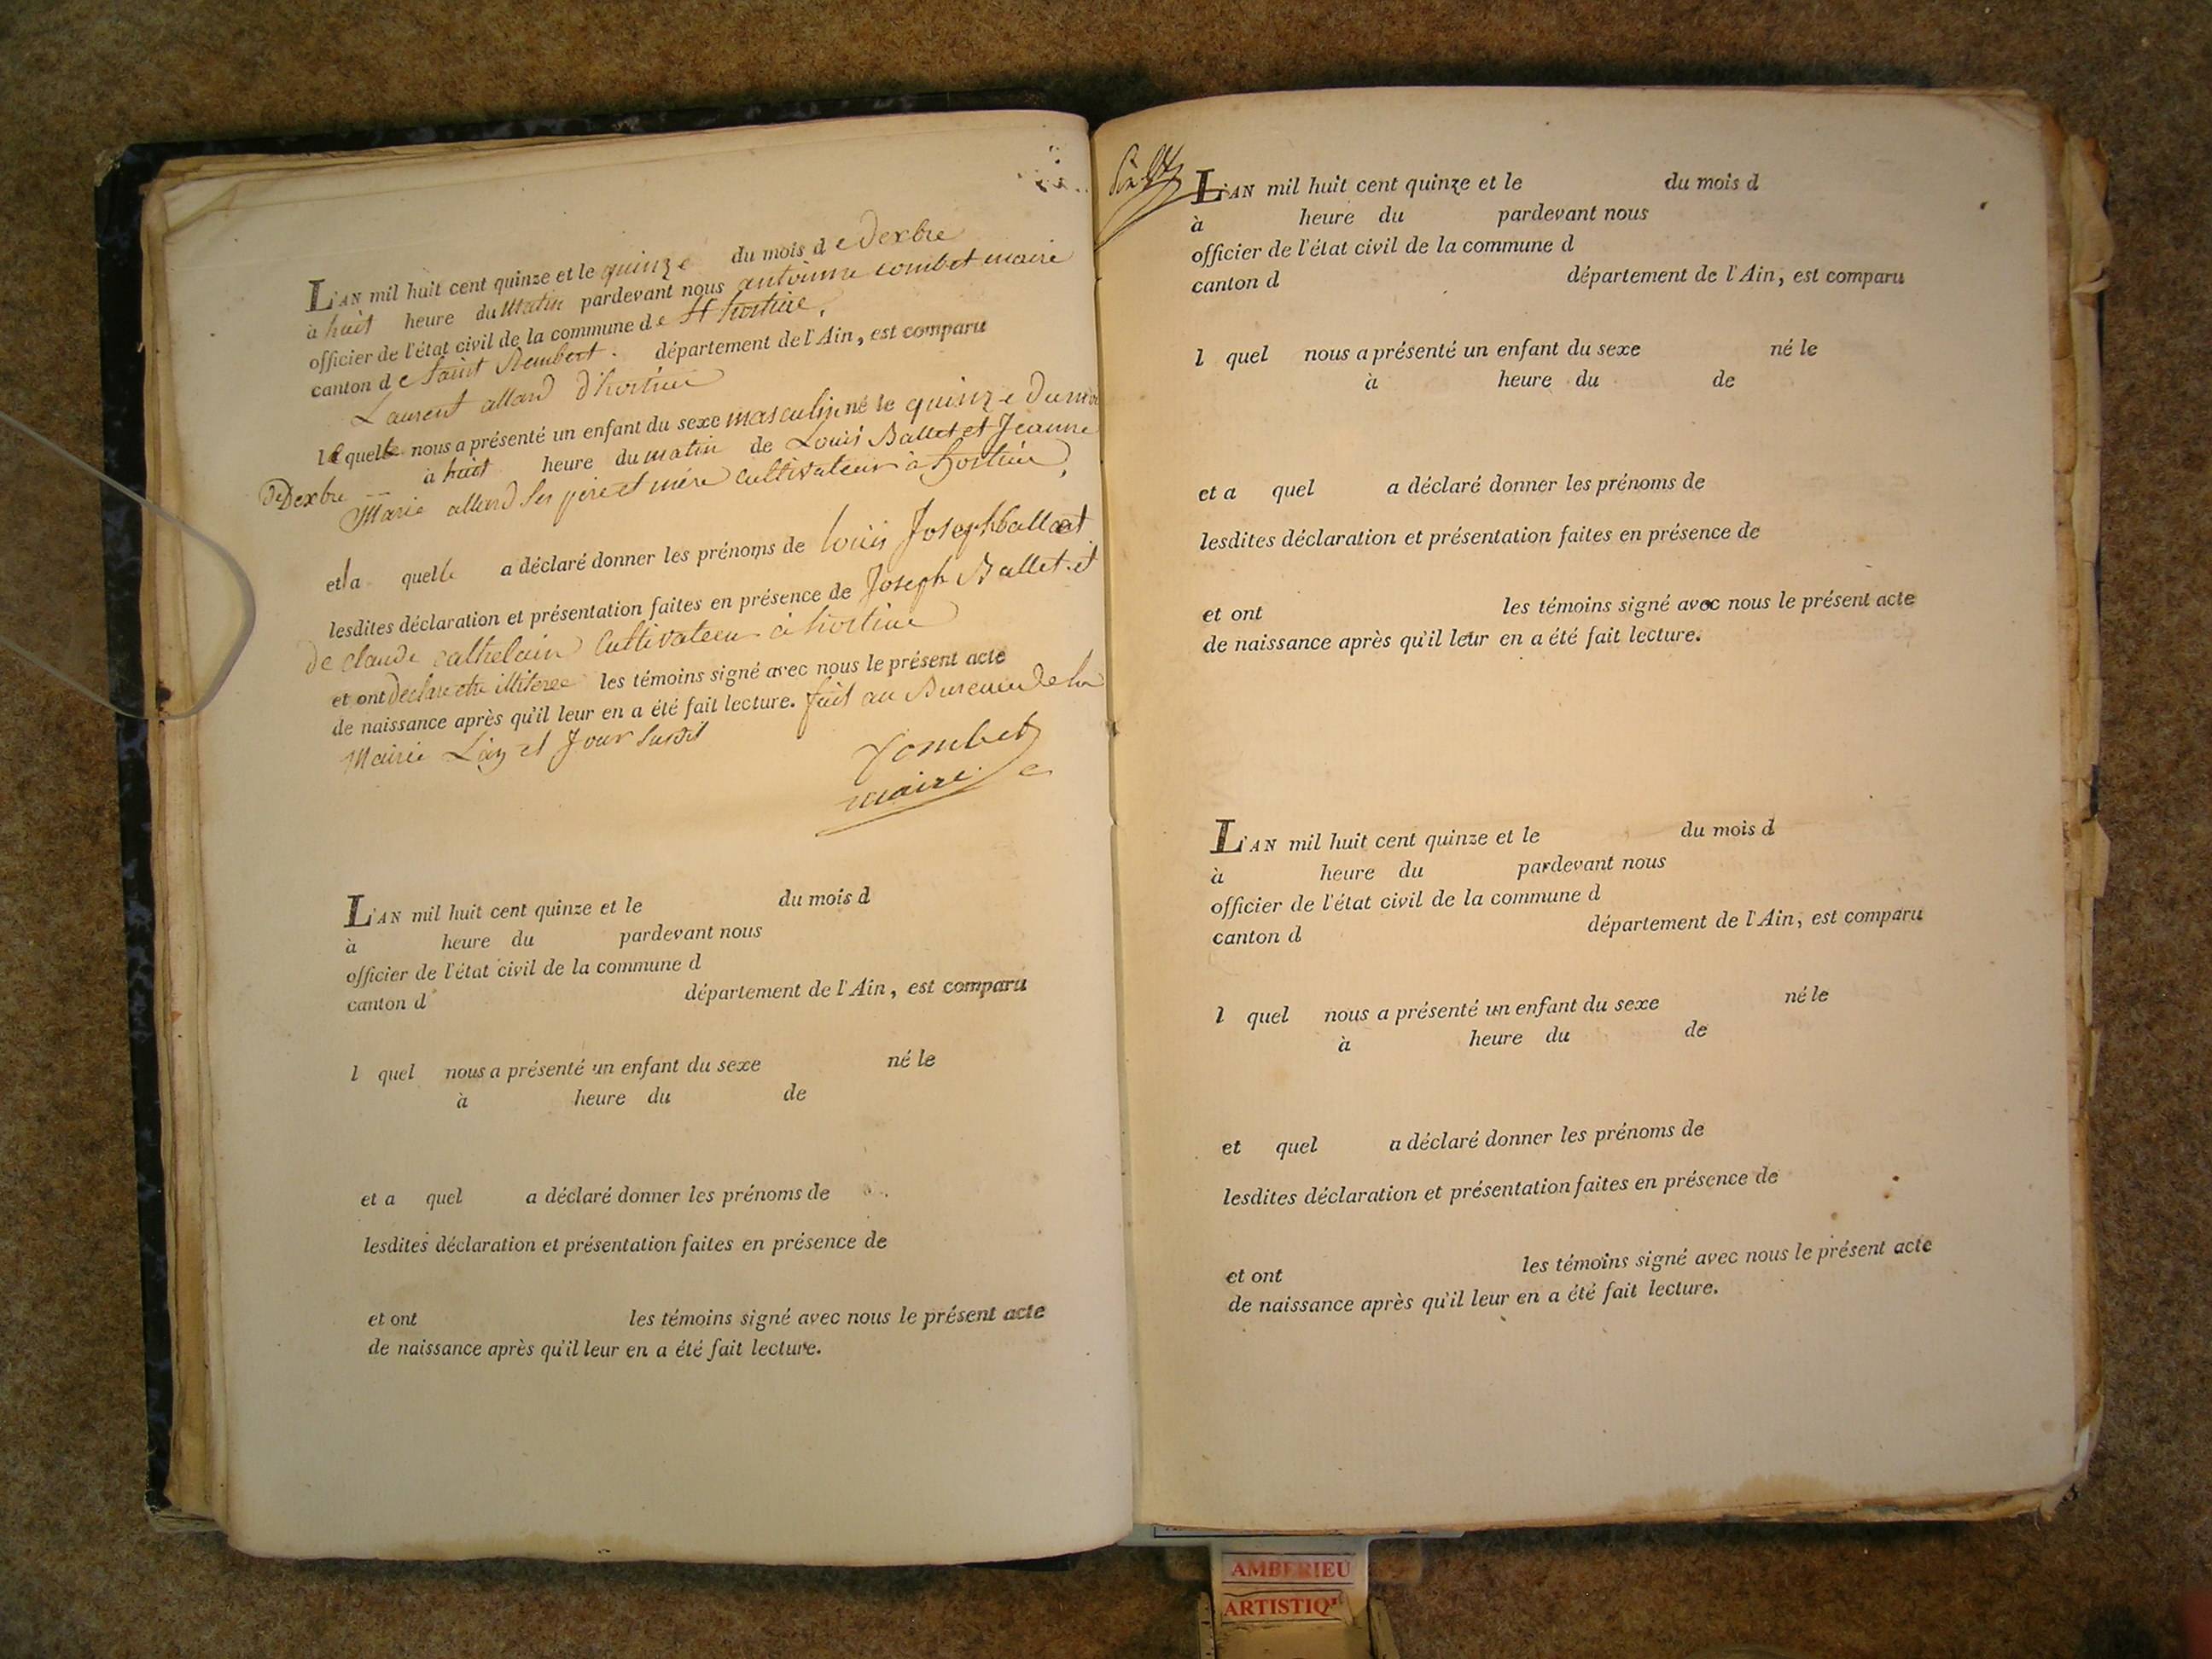 L'AN mil huit cent quinze et le quinze du mois de dexbre
à huit heure du matin pardevant nous antoinne combet maire
officier de l'état civil de la commune de
canton de saint Rembert. département de l'Ain, est comparu
Laurent allard d'
lequelle nous a présenté un enfant du sexe masculin né le quinze du
de Dexbre à huit heure du matin de Louis Ballet et Jeanne
Marie allard ses pere et mère cultivateur à
et la quelle a déclaré donner les prénoms de louis Joseph
lesdites déclaration et présentation faites en présence de Joseph Ballet et
de claude cathelain cultivateur à
et ont declare etre illiteree les témoins signé avec nous le présent acte
de naissance après qu'il leur en a été fait lecture. fait au Bureau de la
Mairie et Jour susdit
Combet
maire
L'AN mil huit cent quinze et le du mois d
à heure du pardevant nous
officier de l'état civil de la commune d
canton d département de l'Ain, est comparu
l quel nous a présenté un enfant du sexe né le
à heure du de
et a quel a déclaré donner les prénoms de
lesdites déclaration et présentation faites en présence de
et ont les témoins signé avec nous le présent acte
de naissance après qu'il leur en a été fait lecture.
L'AN mil huit cent quinze et le du mois d
à heure du pardevant nous
officier de l'état civil de la commune d
canton d département de l'Ain, est comparu
l quel nous a présenté un enfant du sexe né le
à heure du de
et a quel a déclaré donner les prénoms de
lesdites déclaration et présentation faites en présence de
et ont les témoins signé avec nous le présent acte
de naissance après qu'il leur en a été fait lecture.
L'AN mil huit cent quinze et le du mois d
à heure du pardevant nous
officier de l'état civil de la commune d
canton d département de l'Ain, est comparu
l quel nous a présenté un enfant du sexe né le
à heure du de
et quel a déclaré donner les prénoms de
lesdites déclaration et présentation faites en présence de
et ont les témoins signé avec nous le présent acte
de naissance après qu'il leur en a été fait lecture.
AMBERIEU
ARTISTIQ